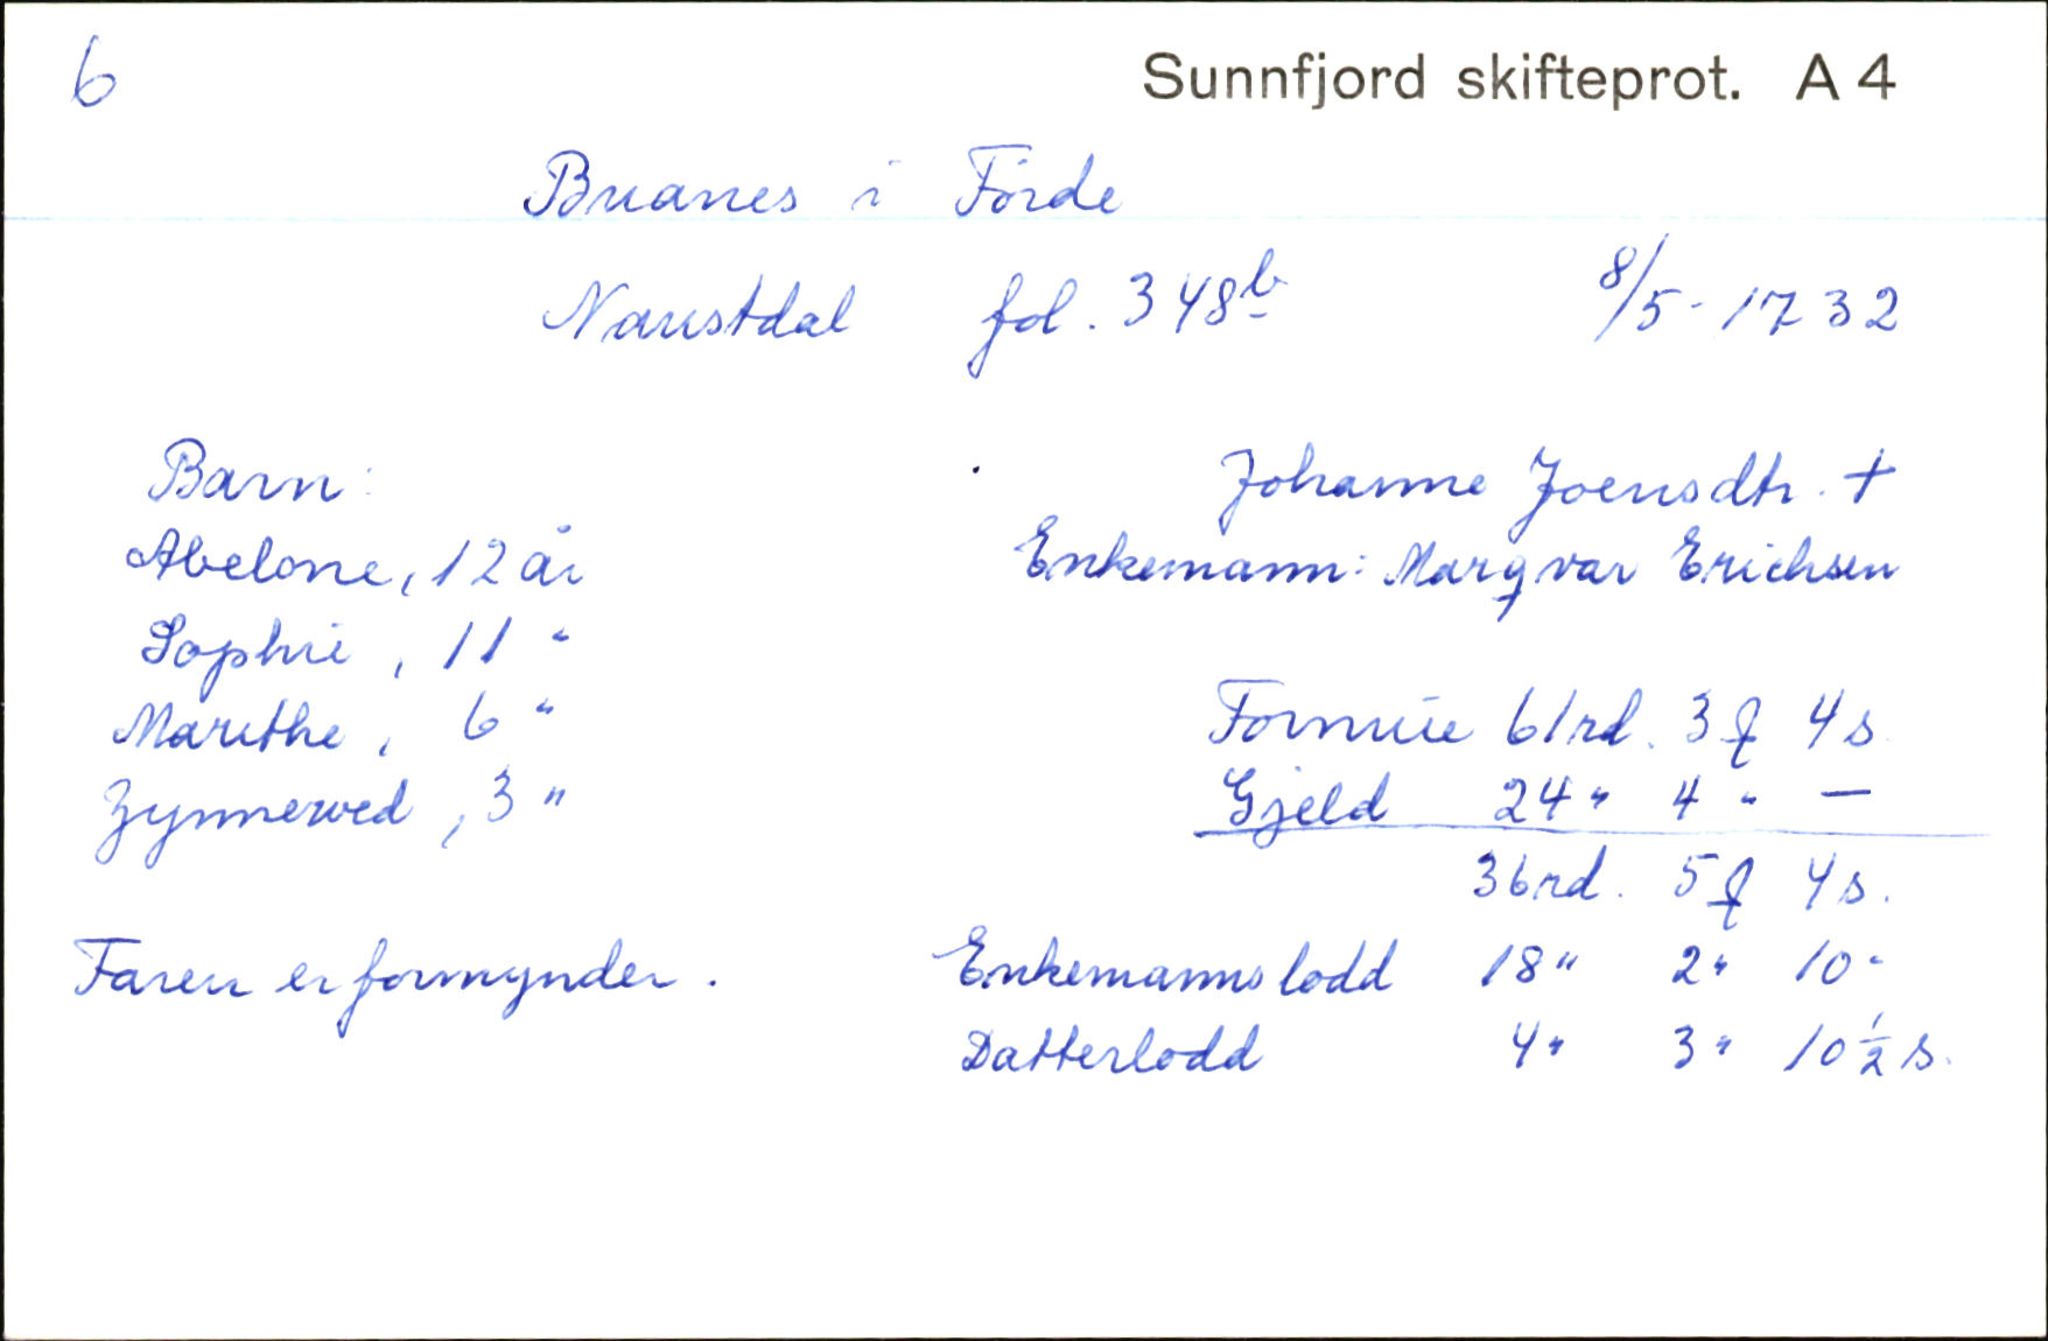 6
Sunnfjord skifteprot. A 4
Buanes i Förde
Naustdal fol. 348b 8/5-1732
Barn:
Johanne Joensdtr. +
Abelone, 12 år
Enkemann: Marqvar Erichsen
Sophie, 11 "
Marithe, 6 "
Formúe 61rd. 3 ꝗ 4 s
Zynnewed, 3 "
Gjeld 24 " 4 " —
36rd. 5 ꝗ 4 s.
Faren er formynder.
Enkemannslodd 18 " 2 " 10 "
Datterlodd 4 " 3 " 10 1/2 s.